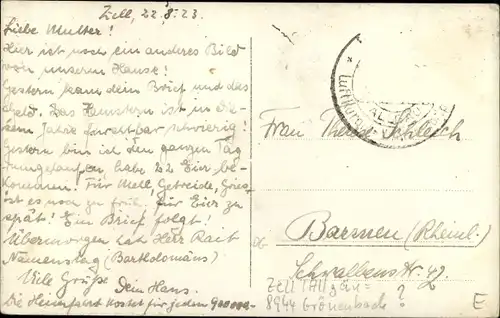 Zell, 22.8.23.
Liebe Mutter!
Hier ist noch ein anderes Bild
von unserem Hause!
Gestern kam dein Brief und das
Geld. Das Hamstern ist in die-
sem Jahre furchtbar schwierig!
Gestern bin ich den ganzen Tag
rumgelaufen, habe 22 Eier be-
kommen. Für Mehl, Getreide, Gries
ist es noch zu früh. Für Eier zu
spät! Ein Brief folgt!
Übermorgen hat Herr Rait
Namenstag (Bartholomäus)
Viele Grüße Dein Hans.
Die Heimfahrt kostet für jeden
Frau Theod. Schleich
Barmen (Rheinl.)
Schwalbenstr. 42.
Zell Allgäu =
8944 Grönenbach ?
E